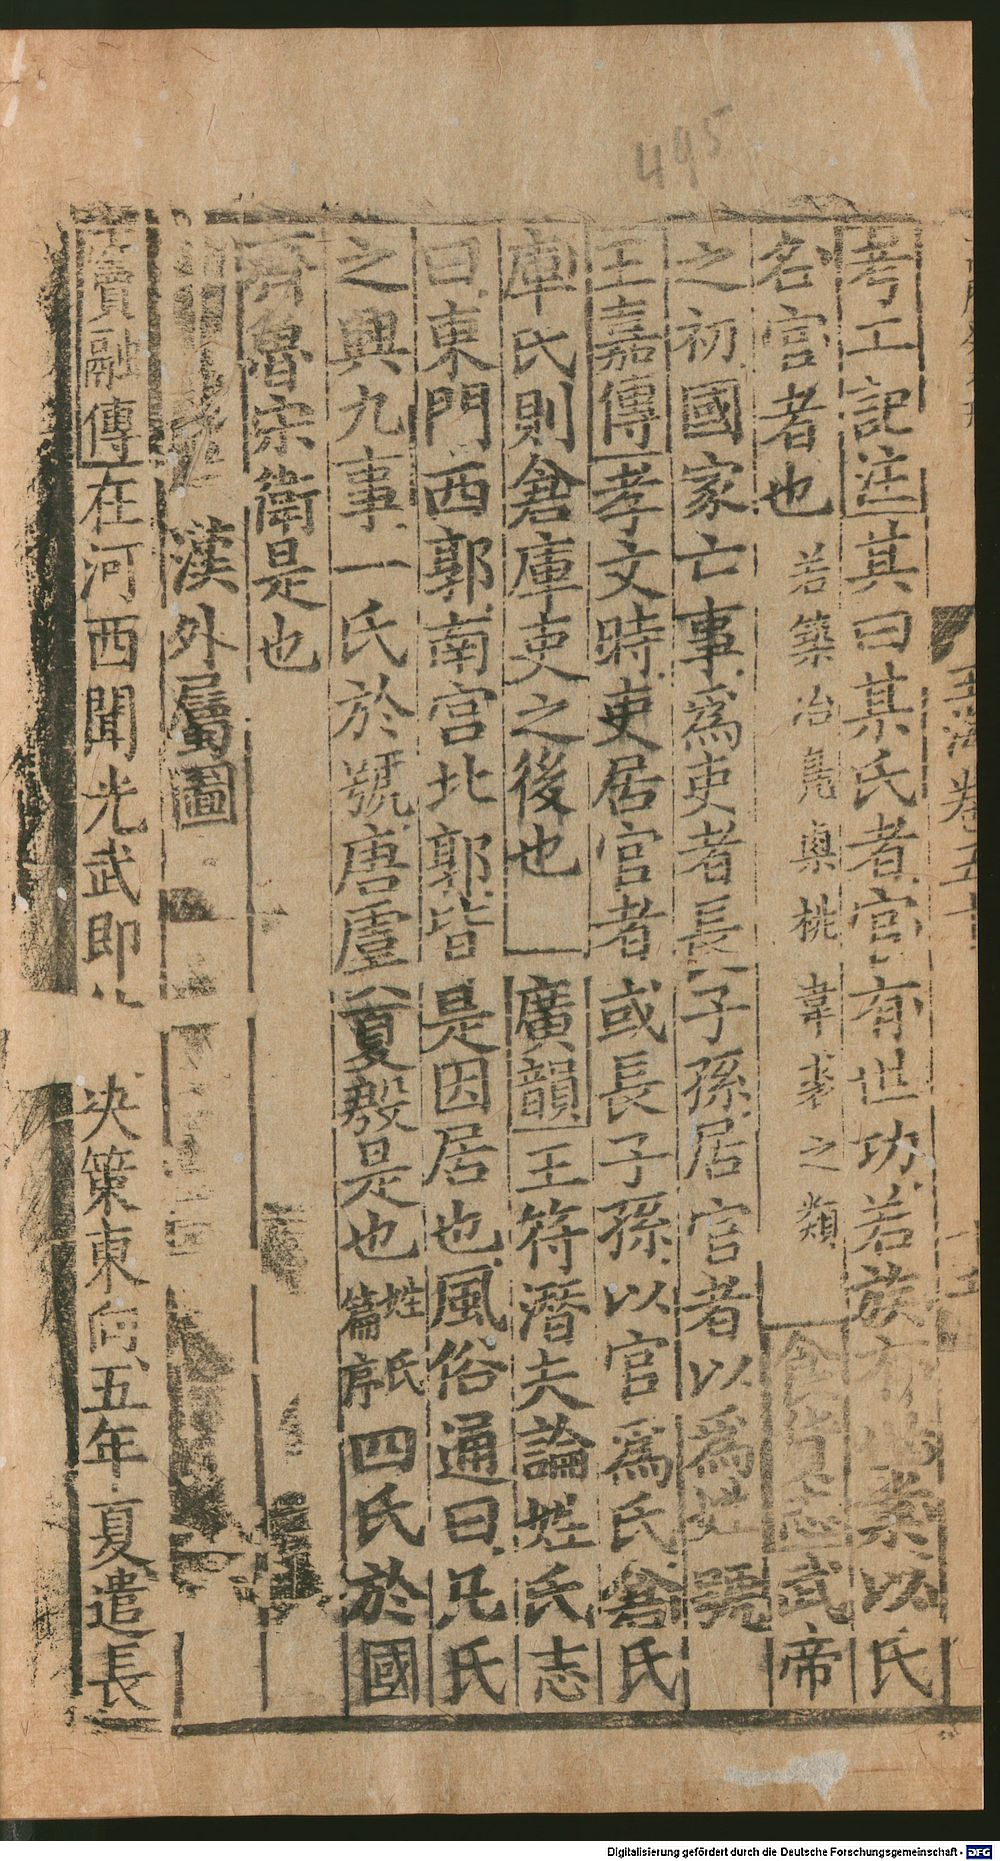 495
玉海卷五十
考工記注其曰某氏者官有世功若族有世業以氏
名官者也若築冶鳧㮚桃韋裘之類食貨志武帝
之初國家亡事爲吏者長子孫居官者以爲姓號
王嘉傳孝文時吏居官者或長子孫以官爲氏倉氏
庫氏則倉庫吏之後也廣韻王符潛夫論姓氏志
曰東門西郭南宮北郭皆是因居也風俗通曰凡氏
之興九事一氏於號唐虞夏殷是也姓氏篇序四氏於國
齊魯宋衛是也
漢外屬圖
竇融傳在河西聞光武即決策東向五年夏遣長
Digitalisierung gefördert durch die Deutsche Forschungsgemeinschaft - DFG